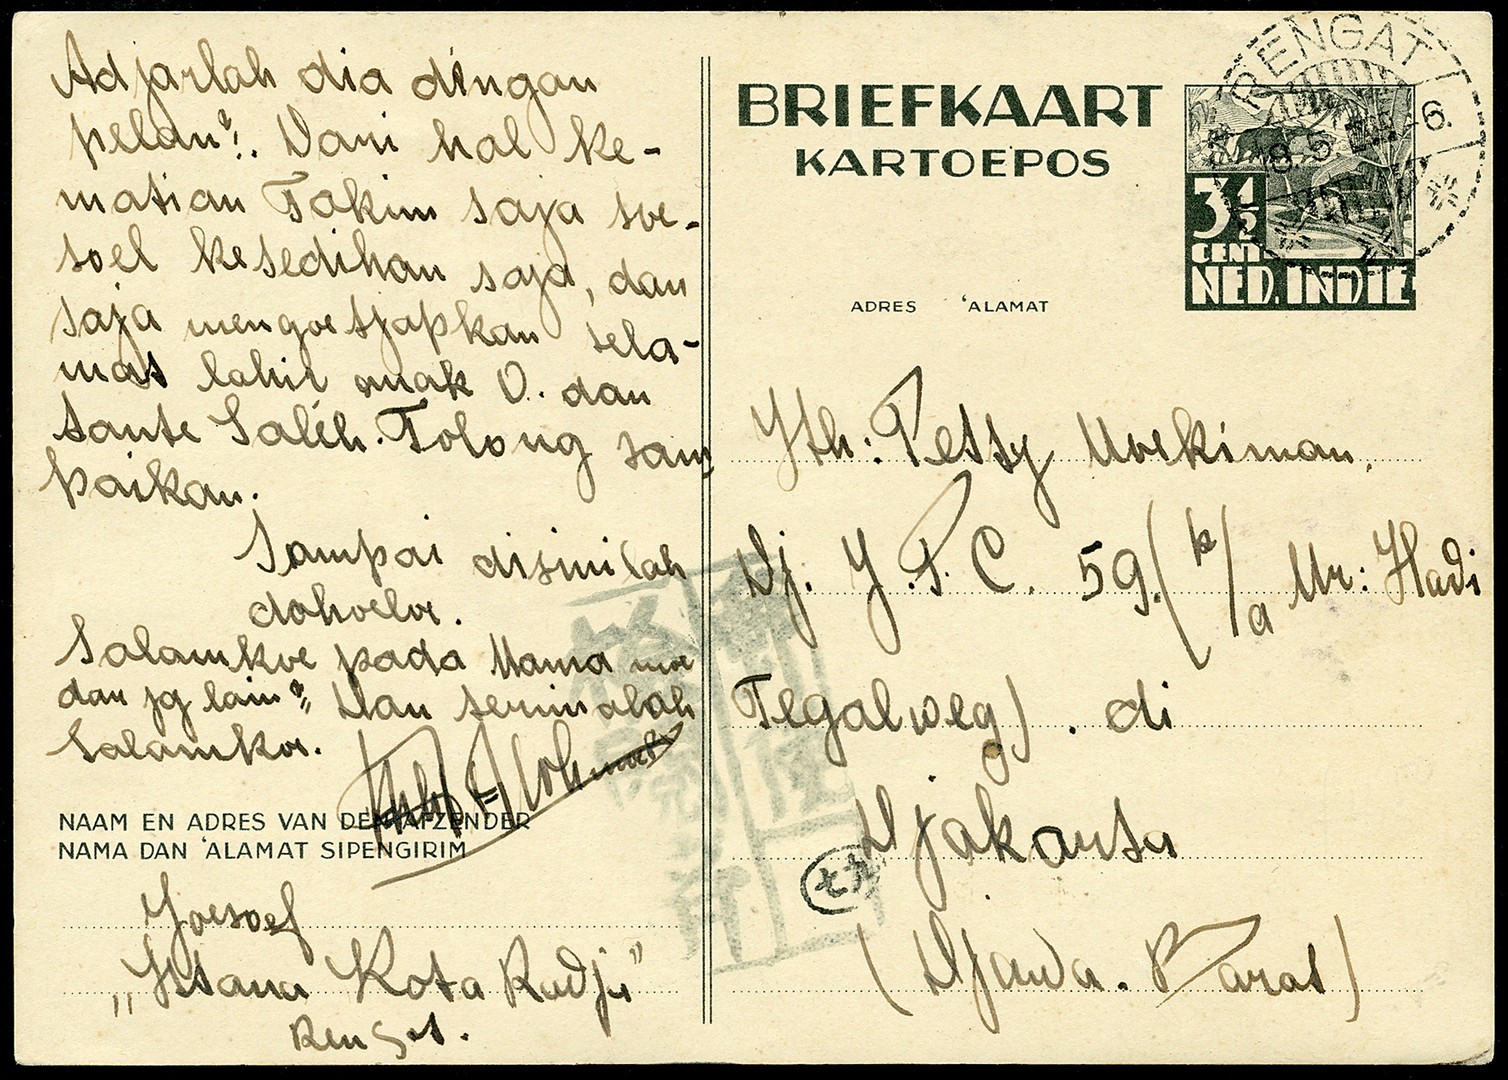 Adjarlah dia dingan
pelan²!. Dari hal ke-
matian Takim saja soe-
soel kesedihan saja, dan
saja mengoetjapkan sela-
mat lahir anak O. dan
tante Salih. Tolong sam
paikan.
Sampai disinilah
dahoeloe.
Salamkoe pada Mama moe
dan jg lain². Dan terimalah
Salamkoe.
NAAM EN ADRES VAN DEN AFZENDER
NAMA DAN 'ALAMAT SIPENGIRIM
Joesoef
"Istana Kota Radja"
Rengat.
BRIEFKAART
KARTOEPOS
RENGAT
3½
CENT
NED. INDIE
ADRES 'ALAMAT
Jth: Petsy Moekiman.
Dj. J.P.C. 59. (p/a Mr: Hadi
Tegalweg). di
Djakarta
(Djawa. Barat)
七九